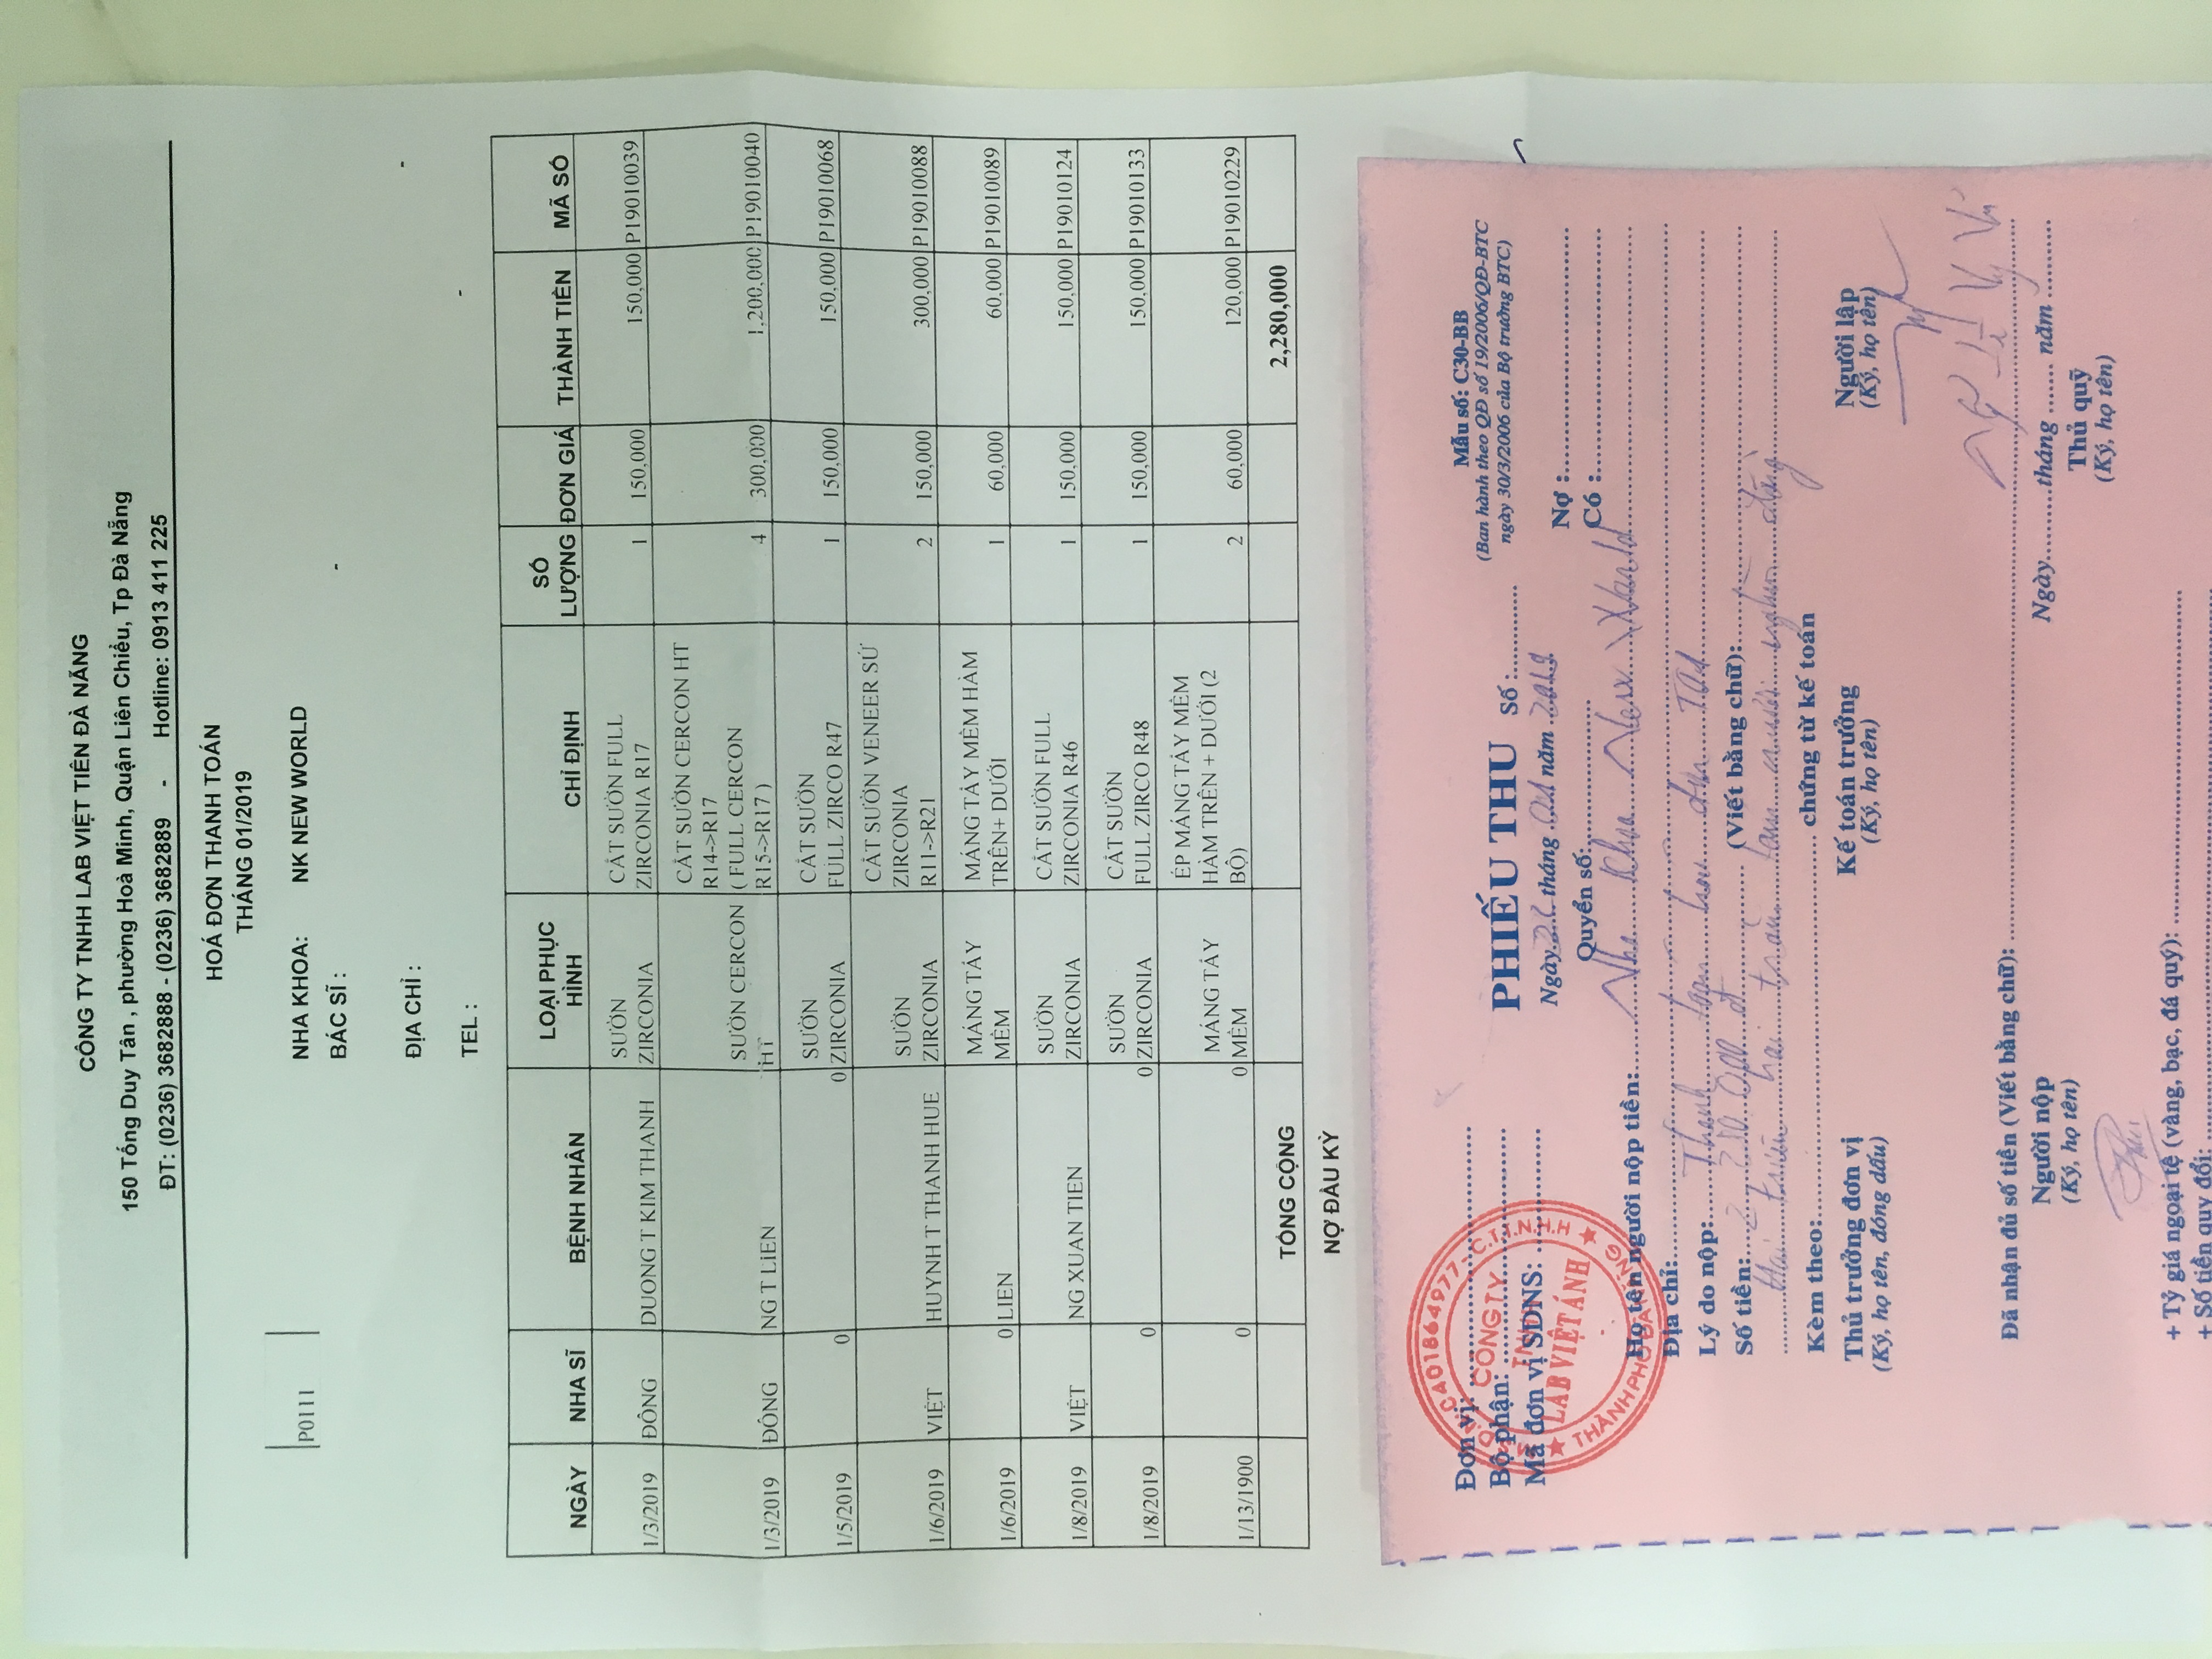 CÔNG TY TNHH LAB VIỆT TIÊN ĐÀ NẴNG
150 Tống Duy Tân , phường Hoà Minh, Quận Liên Chiểu, Tp Đà Nẵng
ĐT: (0236) 3682888 - (0236) 3682889 - Hotline: 0913 411 225
HOÁ ĐƠN THANH TOÁN
THÁNG 01/2019
P0111
NHA KHOA: NK NEW WORLD
BÁC SĨ : -
ĐỊA CHỈ : -
TEL : -
NGÀY NHA SĨ BỆNH NHÂN LOẠI PHỤC HÌNH CHỈ ĐỊNH SỐ LƯỢNG ĐƠN GIÁ THÀNH TIỀN MÃ SỐ
1/3/2019 ĐÔNG DUONG T KIM THANH SƯỜN ZIRCONIA CẮT SƯỜN FULL ZIRCONIA R17 1 150,000 150,000 P19010039
1/3/2019 ĐÔNG NG T LIEN SƯỜN CERCON HT CẮT SƯỜN CERCON HT R14->R17 ( FULL CERCON R15->R17 ) 4 300,000 1,200,000 P19010040
1/5/2019 0 0 SƯỜN ZIRCONIA CẮT SƯỜN FULL ZIRCO R47 1 150,000 150,000 P19010068
1/6/2019 VIỆT HUYNH T THANH HUE SƯỜN ZIRCONIA CẮT SƯỜN VENEER SỨ ZIRCONIA R11->R21 2 150,000 300,000 P19010088
1/6/2019 0 LIEN MÁNG TẨY MỀM MÁNG TẨY MỀM HÀM TRÊN+ DƯỚI 1 60,000 60,000 P19010089
1/8/2019 VIỆT NG XUAN TIEN SƯỜN ZIRCONIA CẮT SƯỜN FULL ZIRCONIA R46 1 150,000 150,000 P19010124
1/8/2019 0 0 SƯỜN ZIRCONIA CẮT SƯỜN FULL ZIRCO R48 1 150,000 150,000 P19010133
1/13/1900 0 0 MÁNG TẨY MỀM ÉP MÁNG TẨY MỀM HÀM TRÊN + DƯỚI (2 BỘ) 2 60,000 120,000 P19010229
TỔNG CỘNG 2,280,000
NỢ ĐẦU KỲ
M.S.D.N: 0401864977 - C.T.T.N.H.H
CÔNG TY
TNHH
LAB VIỆT ÁNH
THÀNH PHỐ ĐÀ NẴNG
Đơn vị:
Bộ phận:
Mã đơn vị SDNS:
PHIẾU THU Số :
Mẫu số: C30-BB
(Ban hành theo QĐ số 19/2006/QĐ-BTC
ngày 30/3/2006 của Bộ trưởng BTC)
Ngày 22 tháng 01 năm 2019
Quyển số:
Nợ :
Có :
Họ tên người nộp tiền: Nha Khoa New World
Địa chỉ:
Lý do nộp: Thanh toán hoá đơn T01
Số tiền: 2 280.000 đ (Viết bằng chữ):
Hai triệu hai trăm tám mươi nghìn đồng
Kèm theo: chứng từ kế toán
Thủ trưởng đơn vị Kế toán trưởng Người lập
(Ký, họ tên, đóng dấu) (Ký, họ tên) (Ký, họ tên)
Đã nhận đủ số tiền (Viết bằng chữ):
Người nộp
(Ký, họ tên)
Ngày tháng năm
Thủ quỹ
(Ký, họ tên)
+ Tỷ giá ngoại tệ (vàng, bạc, đá quý):
+ Số tiền quy đổi: